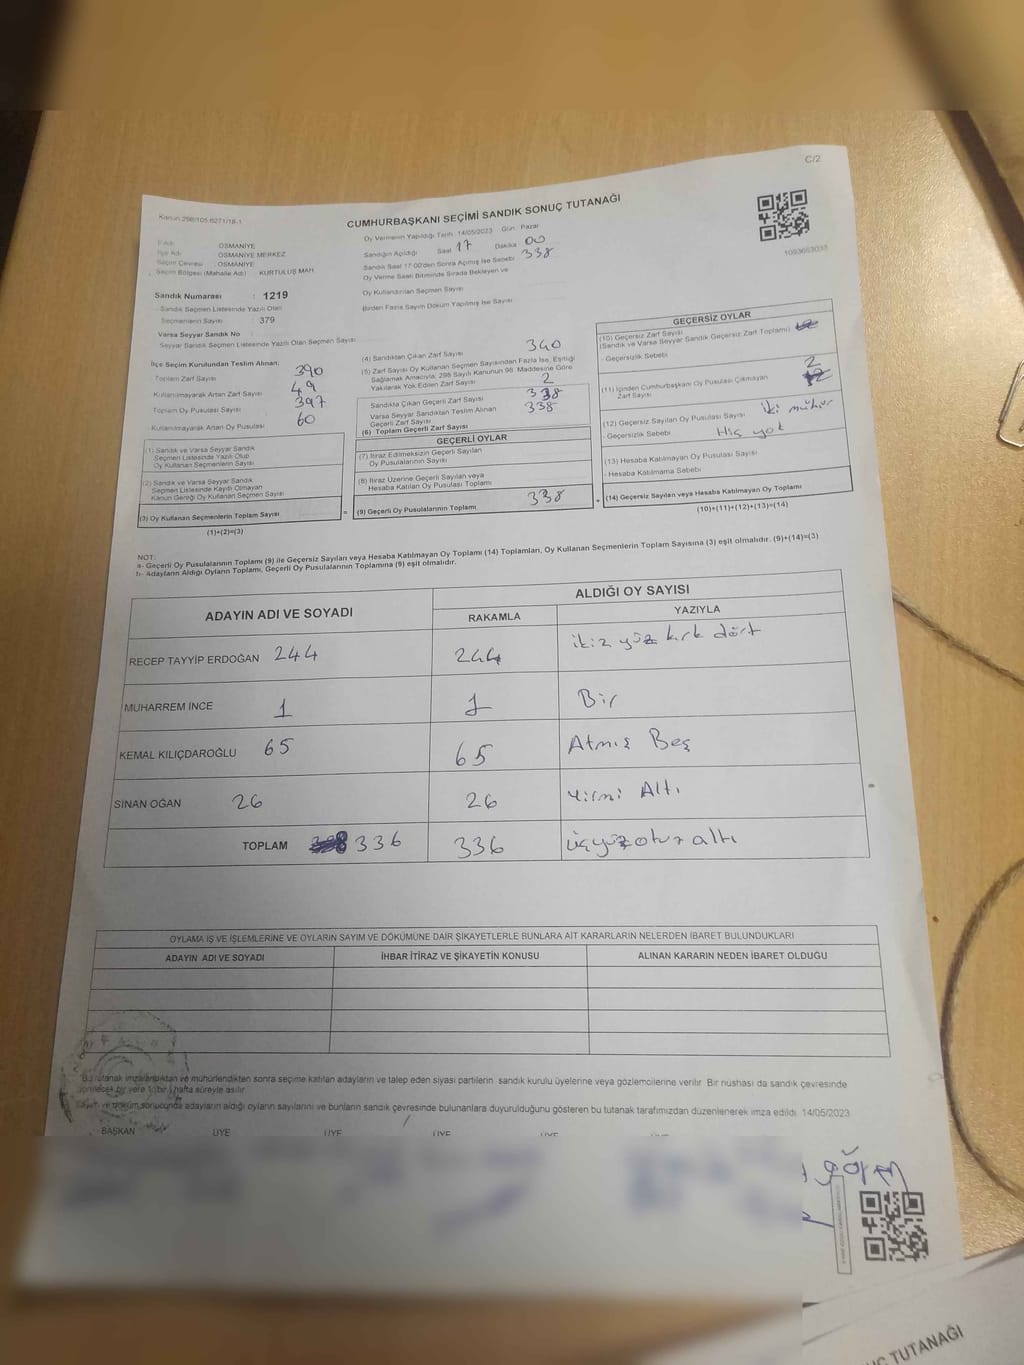 C/2
Kanun:298/105,6271/18-1
CUMHURBAŞKANI SEÇİMİ SANDIK SONUÇ TUTANAĞI
1093693033
İl Adı : OSMANİYE
İlçe Adı : OSMANİYE MERKEZ
Seçim Çevresi : OSMANİYE
Seçim Bölgesi (Mahalle Adı) : KURTULUŞ MAH.
Sandık Numarası : 1219
Sandık Seçmen Listesinde Yazılı Olan
Seçmenlerin Sayısı : 379
Varsa Seyyar Sandık No :
Seyyar Sandık Seçmen Listesinde Yazılı Olan Seçmen Sayısı
Oy Vermenin Yapıldığı Tarih :14/05/2023 Gün : Pazar
Sandığın Açıldığı Saat 17 Dakika 00
Sandık Saat 17:00'den Sonra Açılmış İse Sebebi 338
Oy Verme Saati Bitiminde Sırada Bekleyen ve
Oy Kullandırılan Seçmen Sayısı
Birden Fazla Sayım Döküm Yapılmış İse Sayısı
İlçe Seçim Kurulundan Teslim Alınan:
Toplam Zarf Sayısı 390
Kullanılmayarak Artan Zarf Sayısı 49
Toplam Oy Pusulası Sayısı 397
Kullanılmayarak Artan Oy Pusulası 60
(1) Sandık ve Varsa Seyyar Sandık
Seçmen Listesinde Yazılı Olup
Oy Kullanan Seçmenlerin Sayısı
(2) Sandık ve Varsa Seyyar Sandık
Seçmen Listesinde Kaydı Olmayan
Kanun Gereği Oy Kullanan Seçmen Sayısı
(3) Oy Kullanan Seçmenlerin Toplam Sayısı
(1)+(2)=(3)
=
(4) Sandıktan Çıkan Zarf Sayısı 340
(5) Zarf Sayısı Oy Kullanan Seçmen Sayısından Fazla İse, Eşitliği
Sağlamak Amacıyla, 298 Sayılı Kanunun 98. Maddesine Göre
Yakılarak Yok Edilen Zarf Sayısı 2
Sandıkta Çıkan Geçerli Zarf Sayısı 338
Varsa Seyyar Sandıktan Teslim Alınan 338
Geçerli Zarf Sayısı
(6) Toplam Geçerli Zarf Sayısı
GEÇERLİ OYLAR
(7) İtiraz Edilmeksizin Geçerli Sayılan
Oy Pusulalarının Sayısı
(8) İtiraz Üzerine Geçerli Sayılan veya
Hesaba Katılan Oy Pusulası Toplamı
(9) Geçerli Oy Pusulalarının Toplamı 338
+
GEÇERSİZ OYLAR
(10) Geçersiz Zarf Sayısı
(Sandık ve Varsa Seyyar Sandık Geçersiz Zarf Toplamı)
- Geçersizlik Sebebi
2
(11) İçinden Cumhurbaşkanı Oy Pusulası Çıkmayan
Zarf Sayısı
(12) Geçersiz Sayılan Oy Pusulası Sayısı iki mühür
- Geçersizlik Sebebi Hiç yok
(13) Hesaba Katılmayan Oy Pusulası Sayısı
- Hesaba Katılmama Sebebi
(14) Geçersiz Sayılan veya Hesaba Katılmayan Oy Toplamı
(10)+(11)+(12)+(13)=(14)
NOT:
a- Geçerli Oy Pusulalarının Toplamı (9) ile Geçersiz Sayılan veya Hesaba Katılmayan Oy Toplamı (14) Toplamları, Oy Kullanan Seçmenlerin Toplam Sayısına (3) eşit olmalıdır. (9)+(14)=(3)
b- Adayların Aldığı Oyların Toplamı, Geçerli Oy Pusulalarının Toplamına (9) eşit olmalıdır.
ADAYIN ADI VE SOYADI
ALDIĞI OY SAYISI
RAKAMLA YAZIYLA
RECEP TAYYİP ERDOĞAN 244 244 ikiz yüz kırk dört
MUHARREM İNCE 1 1 Bir
KEMAL KILIÇDAROĞLU 65 65 Atmış Beş
SİNAN OĞAN 26 26 Yirmi Altı
TOPLAM 336 336 üçyüzotuz altı
OYLAMA İŞ VE İŞLEMLERİNE VE OYLARIN SAYIM VE DÖKÜMÜNE DAİR ŞİKAYETLERLE BUNLARA AİT KARARLARIN NELERDEN İBARET BULUNDUKLARI
ADAYIN ADI VE SOYADI İHBAR İTİRAZ VE ŞİKAYETİN KONUSU ALINAN KARARIN NEDEN İBARET OLDUĞU
Bu tutanak imzalandıktan ve mühürlendikten sonra seçime katılan adayların ve talep eden siyasi partilerin sandık kurulu üyelerine veya gözlemcilerine verilir. Bir nüshası da sandık çevresinde
görülecek bir yere 1 (bir) hafta süreyle asılır.
Sayım ve döküm sonucunda adayların aldığı oyların sayılarını ve bunların sandık çevresinde bulunanlara duyurulduğunu gösteren bu tutanak tarafımızdan düzenlenerek imza edildi. 14/05/2023
BAŞKAN ÜYE ÜYE ÜYE ÜYE
TUTANAĞI